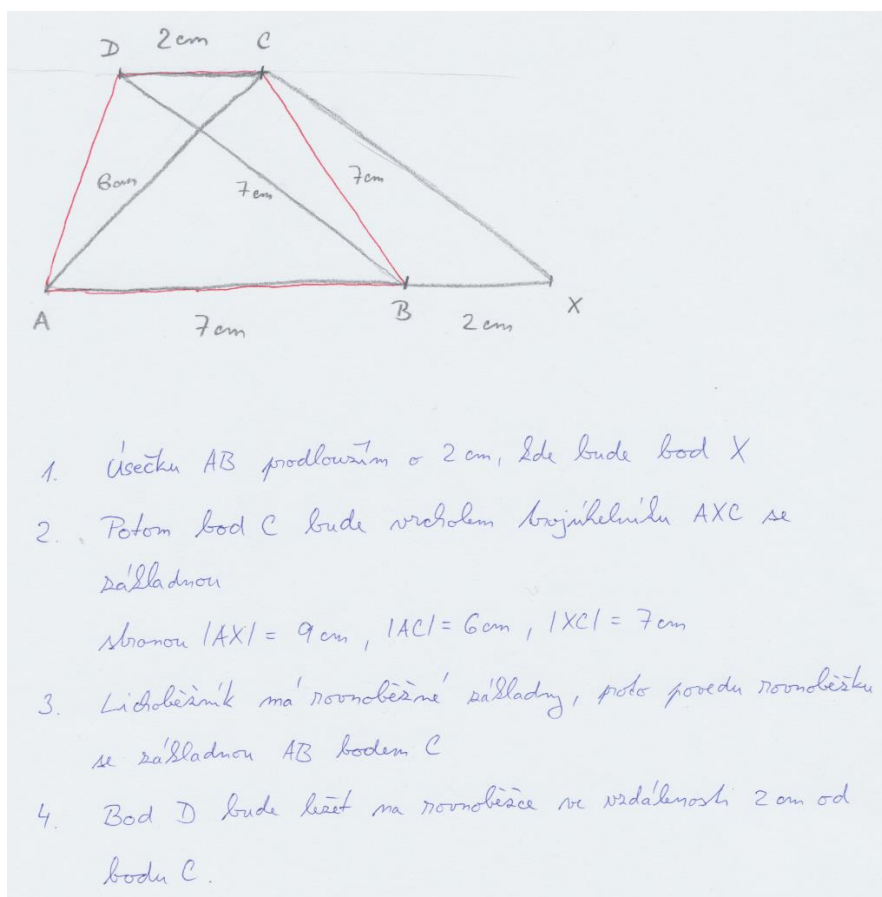 D 2 cm C
6 cm 7 cm 7 cm
A 7 cm B 2 cm X
1. Úsečku AB prodloužím o 2 cm, kde bude bod X
2. Potom bod C bude vrcholem trojúhelníku AXC se
základnou
stranou |AX| = 9 cm, |AC| = 6 cm, |XC| = 7 cm
3. Lichoběžník má rovnoběžné základny, proto povedu rovnoběžku
se základnou AB bodem C
4. Bod D bude ležet na rovnoběžce ve vzdálenosti 2 cm od
bodu C.